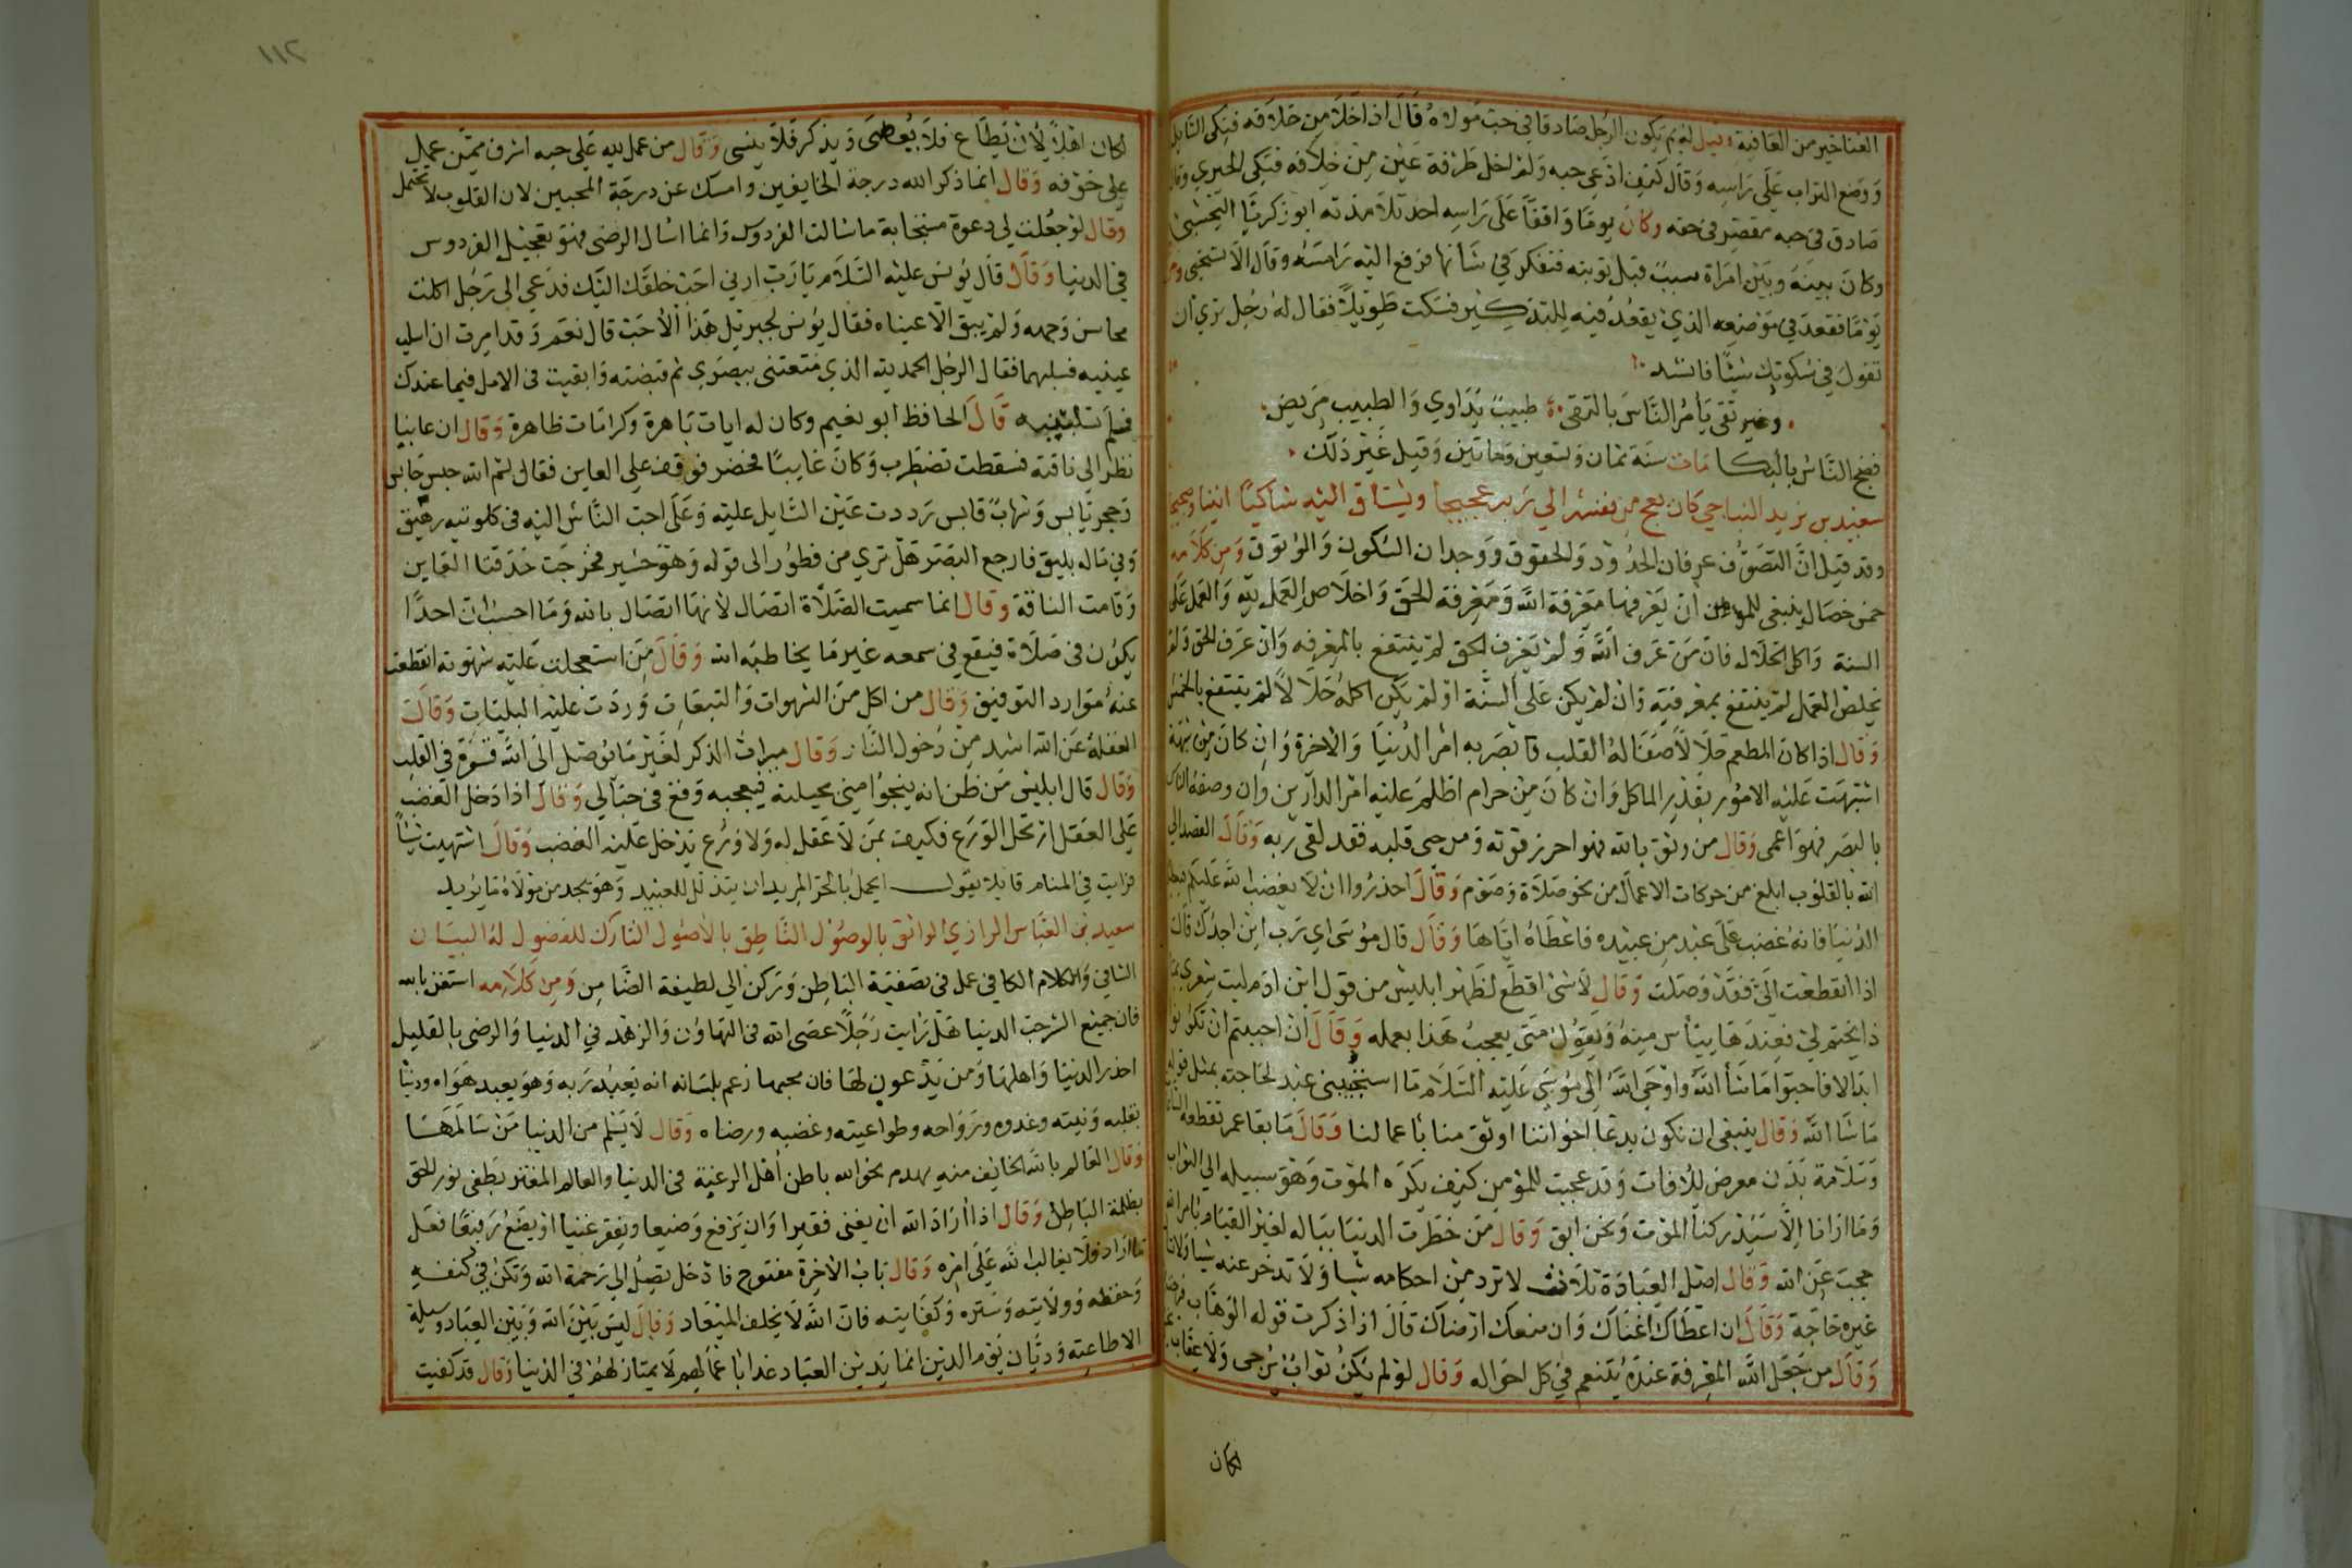 الغنا خير من العافية وقيل له لم يكون الرجل صادقا في حب مولاه قال اذا خلا من خلافه فبكى السايل
ووضع التراب على راسه وقال كيف ادعي حبه ولم اخل طرفة عين من خلافه فبكى الحيري وقال
صادق في حبه مقصر في حقه وكان يوما واقفا على راسه احد تلامذته ابو زكريا النخشبي
وكان بينه وبين امراة سبب قبل توبته فتفكر في شانها فرفع اليه راسه وقال الا تستحي
يوما فقعد في موضعه الذي يقعد فيه للتذكير فسكت طويلا فقال له رجل تري ان
تقول في سكوتك شيئا فانشد
وغير تقى يأمر الناس بالتقى طبيب يداوي والطبيب مريض
فضج الناس بالبكا مات سنة ثمان وتسعين ومايتين وقيل غير ذلك
سعيد بن يزيد النباجي كان يعج من نفسه الي ربه عجيجا ويشتاق اليه شاكيا
وقد قيل ان التصوف عرفان الحدود والحقوق ووجدان السكون والوثوق ومن كلامه
خمس خصال ينبغي للمومن ان يعرفها معرفة الله ومعرفة الحق واخلاص العمل لله والعمل على
السنة واكل الحلال فان من عرف الله ولم يعرف الحق لم ينتفع بالمعرفه وان عرف الحق ولم
يخلص العمل لم ينتفع بمعرفته وان لم يكن على السنة او لم يكن اكله حلالا لم ينتفع بالخمس
وقال اذا كان المطعم حلالا صفا له القلب فابصر به امر الدنيا والاخرة وان كان من شبهة
اشتبهت عليه الامور بقدر الماكل وان كان من حرام اظلم عليه امر الدارين وان وصفه الناس
بالبصر فهو اعمى وقال من وثق بالله فهو احرز قوته ومن حيى قلبه فقد لقى ربه وقال القصد الى
الله بالقلوب ابلغ من حركات الاعمال من نحو صلاة وصوم وقال احذروا ان لا يغضب الله عليكم
الدنيا فانه غضب على عبد من عبيده فاعطاه اياها وقال قال موسى اي رب اين اجدك قال
اذا انقطعت الي فقد وصلت وقال لا شى اقطع لظهر ابليس من قول ابن ادم ليت شعري
ذا يختم لي فعندها يياس منه ويقول متى يعجب هذا بعمله وقال ان احببتم ان تكونو
ابدالا فاحبوا ما شأ الله واوحى الله الى موسى عليه السلام ما استحثني عبد لحاجته بمثل قوله
ما شا الله وقال ينبغي ان نكون بدعا اخواننا اوثق منا باعمالنا وقال ما بقا عمر تقطعه
وسلامة بدن معرض للافات وقد عجبت للمؤمن كيف يكره الموت وهو سبيله الي الثواب
وما ارانا الا سيدركنا الموت ونحن ابق وقال من خطرت الدنيا بباله لغير القيام بامر الله
حجب عن الله وقال اصل العبادة ثلاث لا ترد من احكامه شيا ولا تدخر عنه شيا
غيره حاجة وقال ان اعطاك اغناك وان منعك ارضاك قال اذا ذكرت قوله الوهاب
وقال من جعل الله المعرفة عنده يتنعم في كل احواله وقال لو لم يكن ثواب يرجى ولا عقاب
لكان
١١٢
لكان اهلا لان يطاع فلا يعصى ويذكر فلا ينسى وقال من عمل لله على حبه اشرف ممن عمل
علي خوفه وقال انما ذكر الله درجة الخايفين وامسك عن درجة المحبين لان القلوب لا تحتمل
وقال لو جعلت لي دعوة مستجابة ما سالت الفردوس وانما اسال الرضى فهو تعجيل الفردوس
في الدنيا وقال قال يونس عليه السلام يا رب ارني احب خلقك اليك فدعي الى رجل اكلت
محاسن وجهه ولم يبق الا عيناه فقال يونس لجبريل هذا الاحب قال نعم وقد امرت ان اسلبه
عينيه فسلبهما فقال الرجل الحمد لله الذي متعتني ببصري ثم قبضته وابقيت في الامل فيما عندك
فلم تسلبنيه قال الحافظ ابو نعيم وكان له ايات باهرة وكرامات ظاهرة وقال ان عاينا
نظر الى ناقة فسقطت تضطرب وكان غايبا فحضر فوقف علي العاين فقال بسم الله حبس حابس
وحجر يابس وشهاب قابس رددت عين السايل عليه وعلى احب الناس اليه في كلوتيه رهيق
وفي ماله يليق فارجع البصر هل تري من فطور الى قوله وهو حسير فخرجت حدقتا العاين
وقامت الناقة وقال انما سميت الصلاة اتصال لانها اتصال بالله وما احسب ان احدا
يكون في صلاة فيقع في سمعه غير ما يخاطبه الله وقال من استعجلت عليه شهوته انقطعت
عنه موارد التوفيق وقال من اكل من الشهوات والتبعات وردت عليه البليات وقال
الغفلة عن الله اشد من دخول النار وقال ميراث الذكر لغير ما يوصل الى الله قسوة في القلب
وقال قال ابليس من ظن انه ينجوا مني بحيلته فبعجبه وقع في حبالي وقال اذا دخل الغضب
على العقل ارتحل الورع فكيف بمن لا عقل له ولا ورع يدخل عليه الغضب وقال اشتهيت شيأ
فرايت في المنام قايلا يقول ايجمل بالحر المريد ان يتذلل للعبيد وهو يجد من مولاه ما يريد
سعيد بن العباس الرازي الواثق بالوصول الناطق بالاصول التارك للفضول له البيان
الشافي والكلام الكافي عمل في تصفية الباطن وتركن الي لطيفة الضامن ومن كلامه استغن بالله
فان جميع الشر حب الدنيا هل رايت رجلا عصى الله في التهاون والزهد في الدنيا والرضى بالقليل
احذر الدنيا واهلها ومن يدعون لها فان محبها زعم بلسانه انه يعبد ربه وهو يعبد هواه ودنيا
بقلبه ونيته وغدوه ورواحه وطواعيته وغضبه ورضاه وقال لا يسلم من الدنيا من سالمها
وقال العالم بالله الخايف منه يهدم بخوف الله باطن اهل الرغبة في الدنيا والعالم المغتر يطفى نور الحق
بظلمة الباطل وقال اذا اراد الله ان يغنى فقيرا وان يرفع وضيعا ويفقر غنيا او يضع رفيعا فعل
ما اراد ولا يغالب الله على امره وقال باب الاخرة مفتوح فادخل تصل الي رحمة الله وتكن في كنفه
وحفظه وولايته وستره وكفايته فان الله لا يخلف الميعاد وقال ليس بين الله وبين العباد وسيلة
الا طاعته وديان يوم الدين انما يدين العباد غدا باعمالهم لا يمتاز لهم في الدنيا وقال قد كفيت